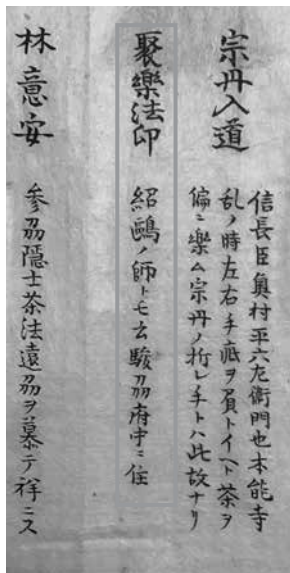 宗丹入道
信長臣奥村平六左衛門也本能寺
乱ノ時左右手疵ヲ負トイヘト茶ヲ
偏ニ楽ム宗丹ノ折レ手トハ此故ナリ
聚樂法印
紹鷗ノ師トモ云駿刕府中ニ住
林意安
参刕隠士茶法遠刕ヲ慕テ祥ニス